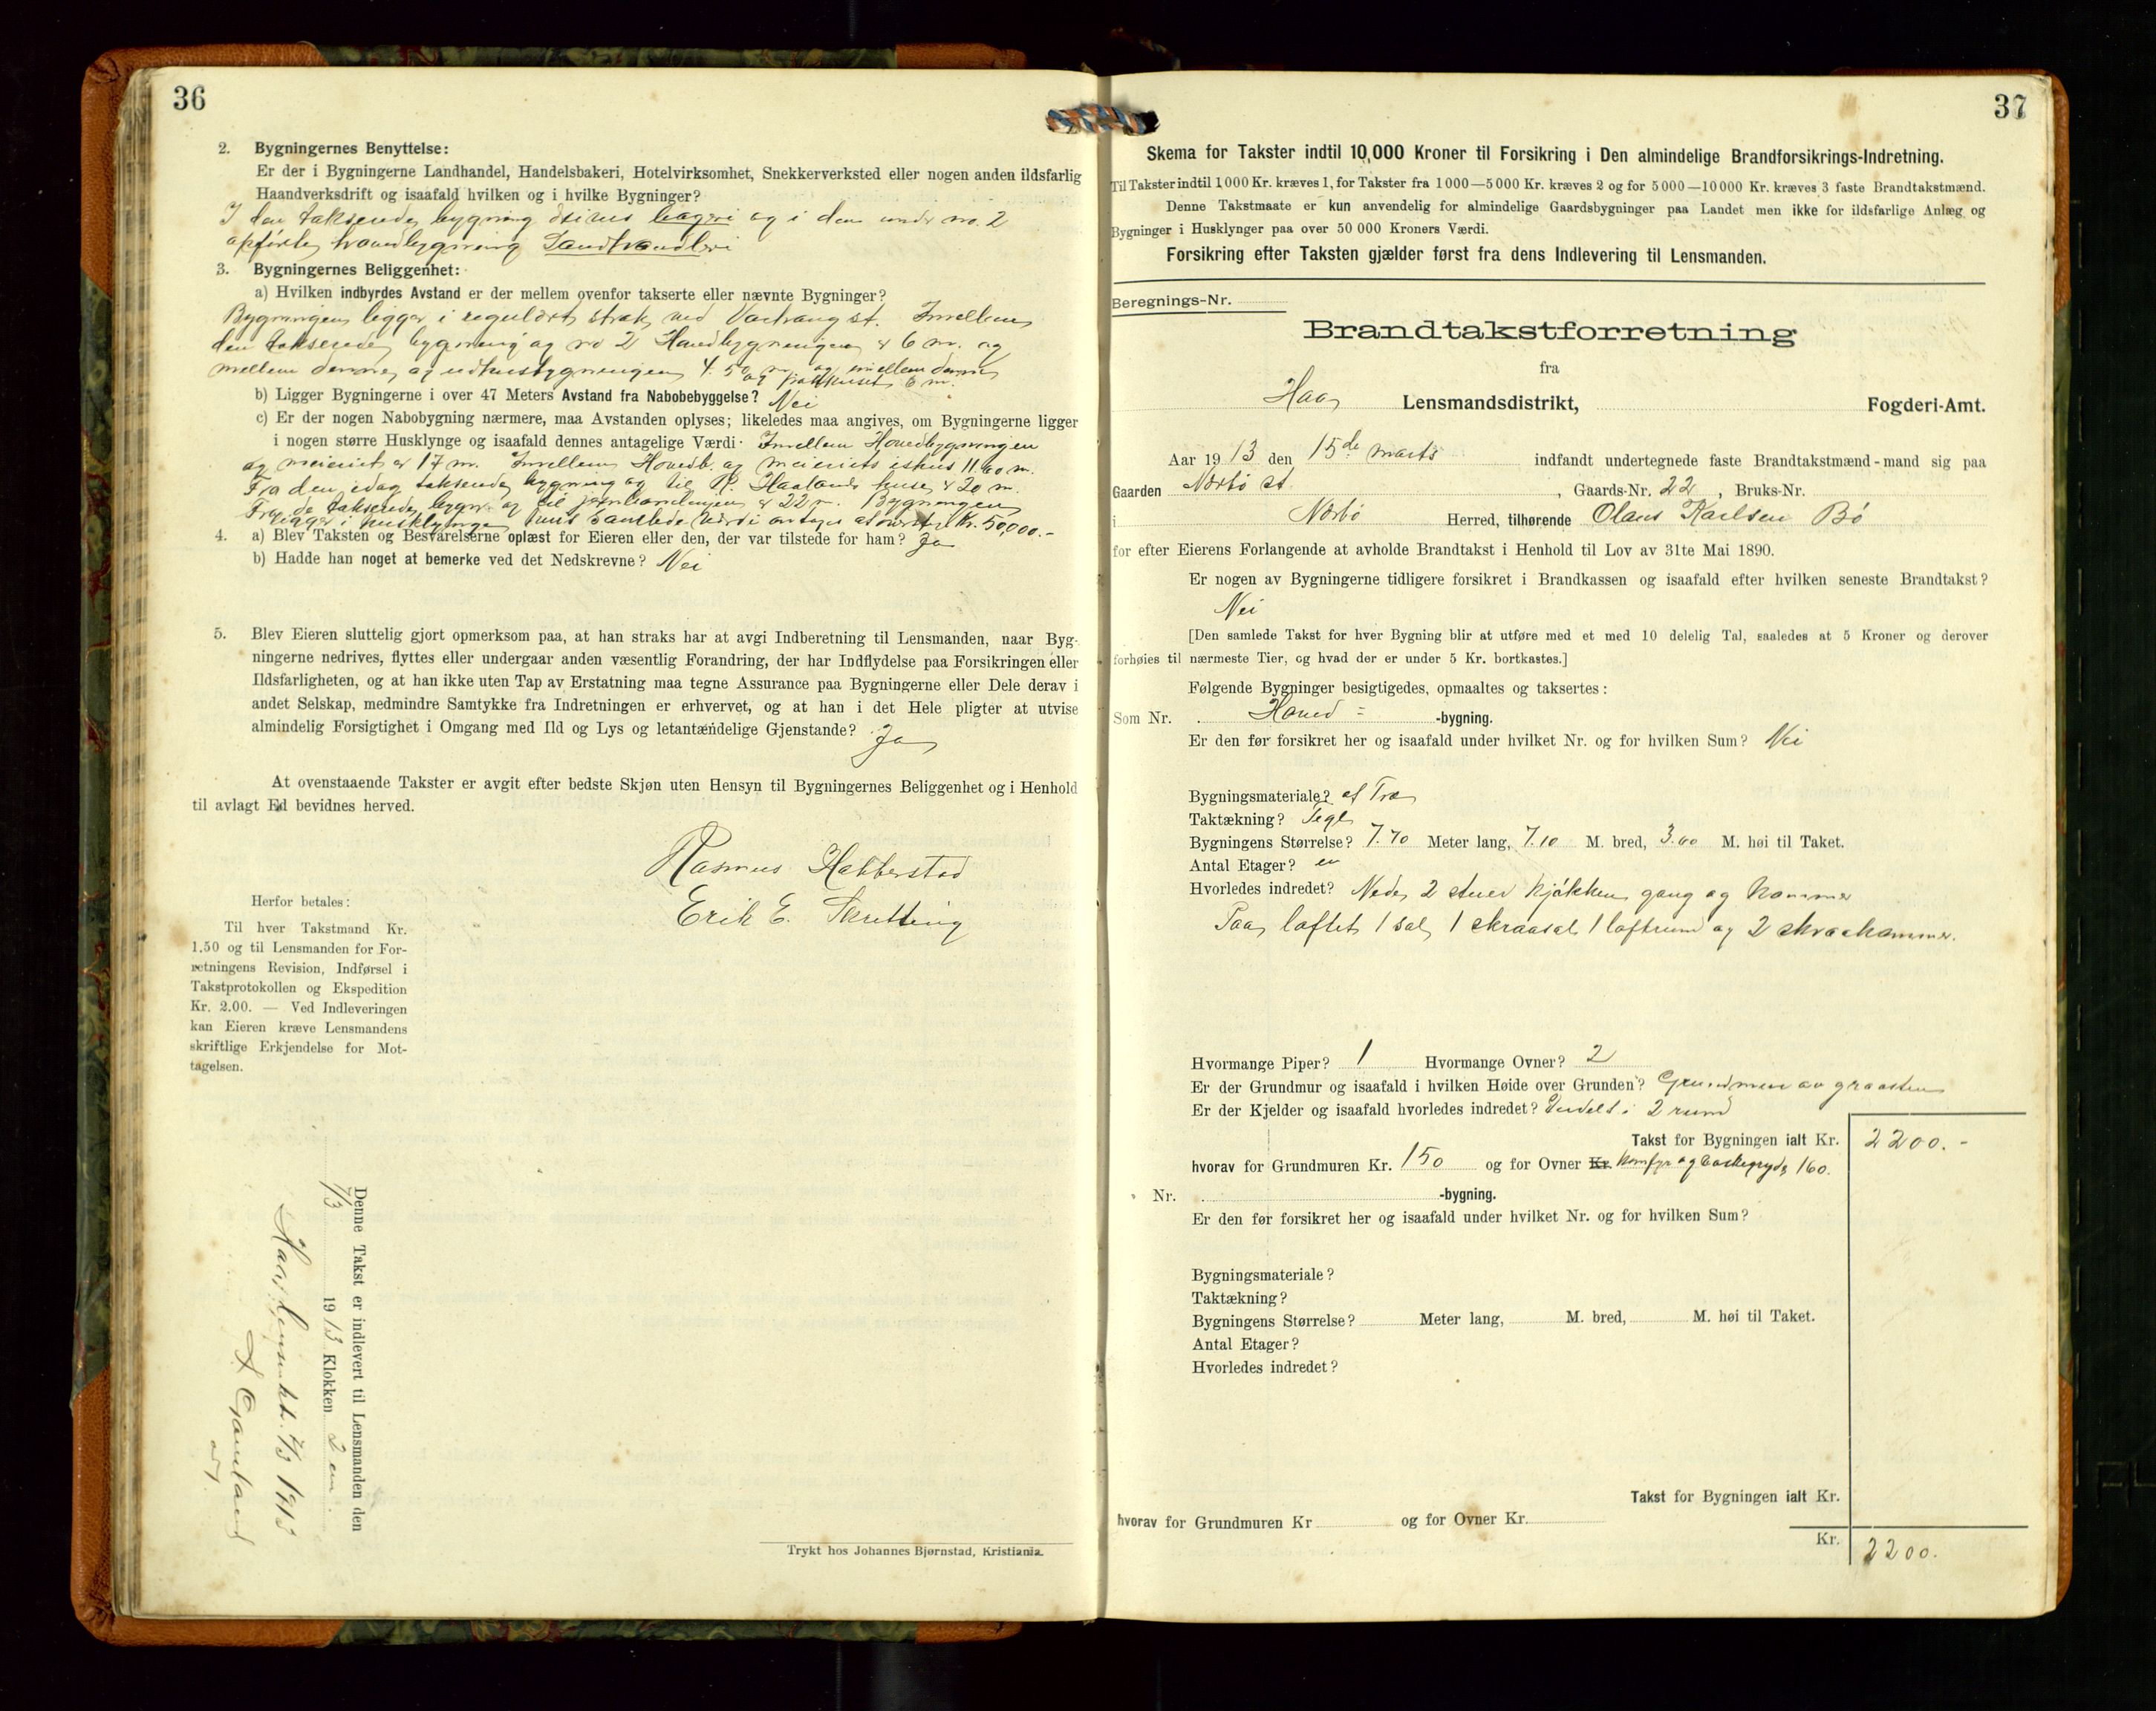 36
2. Bygningernes Benyttelse:
Er der i Bygningerne Landhandel, Handelsbakeri, Hotelvirksomhet, Snekkerverksted eller nogen anden ildsfarlig
Haandverksdrift og isaafald hvilken og i hvilke Bygninger?
I den takserede bygning drives bageri og i den under no. 2
opførte hovedbygning Landhandleri
3. Bygningernes Beliggenhet:
a) Hvilken indbyrdes Avstand er der mellem ovenfor takserte eller nævnte Bygninger?
Bygningen ligger i reguleret strøk ved Varhaug st. Imellem
den takserede bygning og no 2 Hovedbygningen er 6 m. og
mellem denne og udhusbygningen 4.50 m og imellem denne
og pakhuset 6 m.
b) Ligger Bygningerne i over 47 Meters Avstand fra Nabobebyggelse? Nei
c) Er der nogen Nabobygning nærmere, maa Avstanden oplyses; likeledes maa angives, om Bygningerne ligger
i nogen større Husklynge og isaafald dennes antagelige Værdi. Imellem Hovedbygningen
og meieriet er 17 m. Imellem Hovedb. og meieriets ishus 11.00 m.
Fra den idag takserede bygning og til R. Haalands huse er 20 m.
Fra de takserede bygn. og til er 22 m. Bygningen
ligger i husklynge hvis samlede værdi antages at være Kr. 50,000.-
4. a) Blev Taksten og Besvarelserne oplæst for Eieren eller den, der var tilstede for ham? Ja
b) Hadde han noget at bemerke ved det Nedskrevne? Nei
5. Blev Eieren sluttelig gjort opmerksom paa, at han straks har at avgi Indberetning til Lensmanden, naar Byg-
ningerne nedrives, flyttes eller undergaar anden væsentlig Forandring, der har Indflydelse paa Forsikringen eller
Ildsfarligheten, og at han ikke uten Tap av Erstatning maa tegne Assurance paa Bygningerne eller Dele derav i
andet Selskap, medmindre Samtykke fra Indretningen er erhvervet, og at han i det Hele pligter at utvise
almindelig Forsigtighet i Omgang med Ild og Lys og letantændelige Gjenstande? Ja
At ovenstaaende Takster er avgit efter bedste Skjøn uten Hensyn til Bygningernes Beliggenhet og i Henhold
til avlagt Ed bevidnes herved.
Rasmus Habberstad
Erik E. Skretting
Herfor betales:
Til hver Takstmand Kr.
1.50 og til Lensmanden for For-
retningens Revision, Indførsel i
Takstprotokollen og Ekspedition
Kr. 2.00. — Ved Indleveringen
kan Eieren kræve Lensmandens
skriftlige Erkjendelse for Mot-
tagelsen.
Denne Takst er indlevert til Lensmanden den
7/3 1913 Klokken 2 em.
Haa, Lensmkt. 7/3 1913
Trykt hos Johannes Bjørnstad, Kristiania.
37
Skema for Takster indtil 10,000 Kroner til Forsikring i Den almindelige Brandforsikrings-Indretning.
Til Takster indtil 1000 Kr. kræves 1, for Takster fra 1000—5000 Kr. kræves 2 og for 5000—10000 Kr. kræves 3 faste Brandtakstmænd.
Denne Takstmaate er kun anvendelig for almindelige Gaardsbygninger paa Landet men ikke for ildsfarlige Anlæg og
Bygninger i Husklynger paa over 50 000 Kroners Værdi.
Forsikring efter Taksten gjælder først fra dens Indlevering til Lensmanden.
Beregnings-Nr.
Brandtakstforretning
fra
Haa Lensmandsdistrikt, Fogderi-Amt.
Aar 1913 den 15de marts indfandt undertegnede faste Brandtakstmænd - mand sig paa
Gaarden Nærbø st. , Gaards-Nr. 22 , Bruks-Nr.
i Nærbø Herred, tilhørende Olaus Karlsen Bø
for efter Eierens Forlangende at avholde Brandtakst i Henhold til Lov av 31te Mai 1890.
Er nogen av Bygningerne tidligere forsikret i Brandkassen og isaafald efter hvilken seneste Brandtakst?
Nei
[Den samlede Takst for hver Bygning blir at utføre med et med 10 delelig Tal, saaledes at 5 Kroner og derover
forhøies til nærmeste Tier, og hvad der er under 5 Kr. bortkastes.]
Følgende Bygninger besigtigedes, opmaaltes og taksertes:
Som Nr. Hoved = -bygning.
Er den før forsikret her og isaafald under hvilket Nr. og for hvilken Sum? Nei
Bygningsmateriale? af Træ
Taktækning? Tegl
Bygningens Størrelse? 7.70 Meter lang, 7.10 M. bred, 3.00 M. høi til Taket.
Antal Etager? en
Hvorledes indredet? Nede 2 stuer kjøkken gang og kammer
Paa loftet 1 sal, 1 skraasal 1 loftrum og 2 skraakammer.
Hvormange Piper? 1 Hvormange Ovner? 2
Er der Grundmur og isaafald i hvilken Høide over Grunden? Grundmur av graasten
Er der Kjelder og isaafald hvorledes indredet? Indelt i 2 rum
Takst for Bygningen ialt Kr. 2200.-
hvorav for Grundmuren Kr. 150 og for Ovner Kr. komfyr og baskegryde 160.
" Nr. -bygning.
Er den før forsikret her og isaafald under hvilket Nr. og for hvilken Sum?
Bygningsmateriale?
Taktækning?
Bygningens Størrelse? Meter lang, M. bred, M. høi til Taket.
Antal Etager?
Hvorledes indredet?
Takst for Bygningen ialt Kr.
hvorav for Grundmuren Kr og for Ovner Kr.
Kr. 2200.